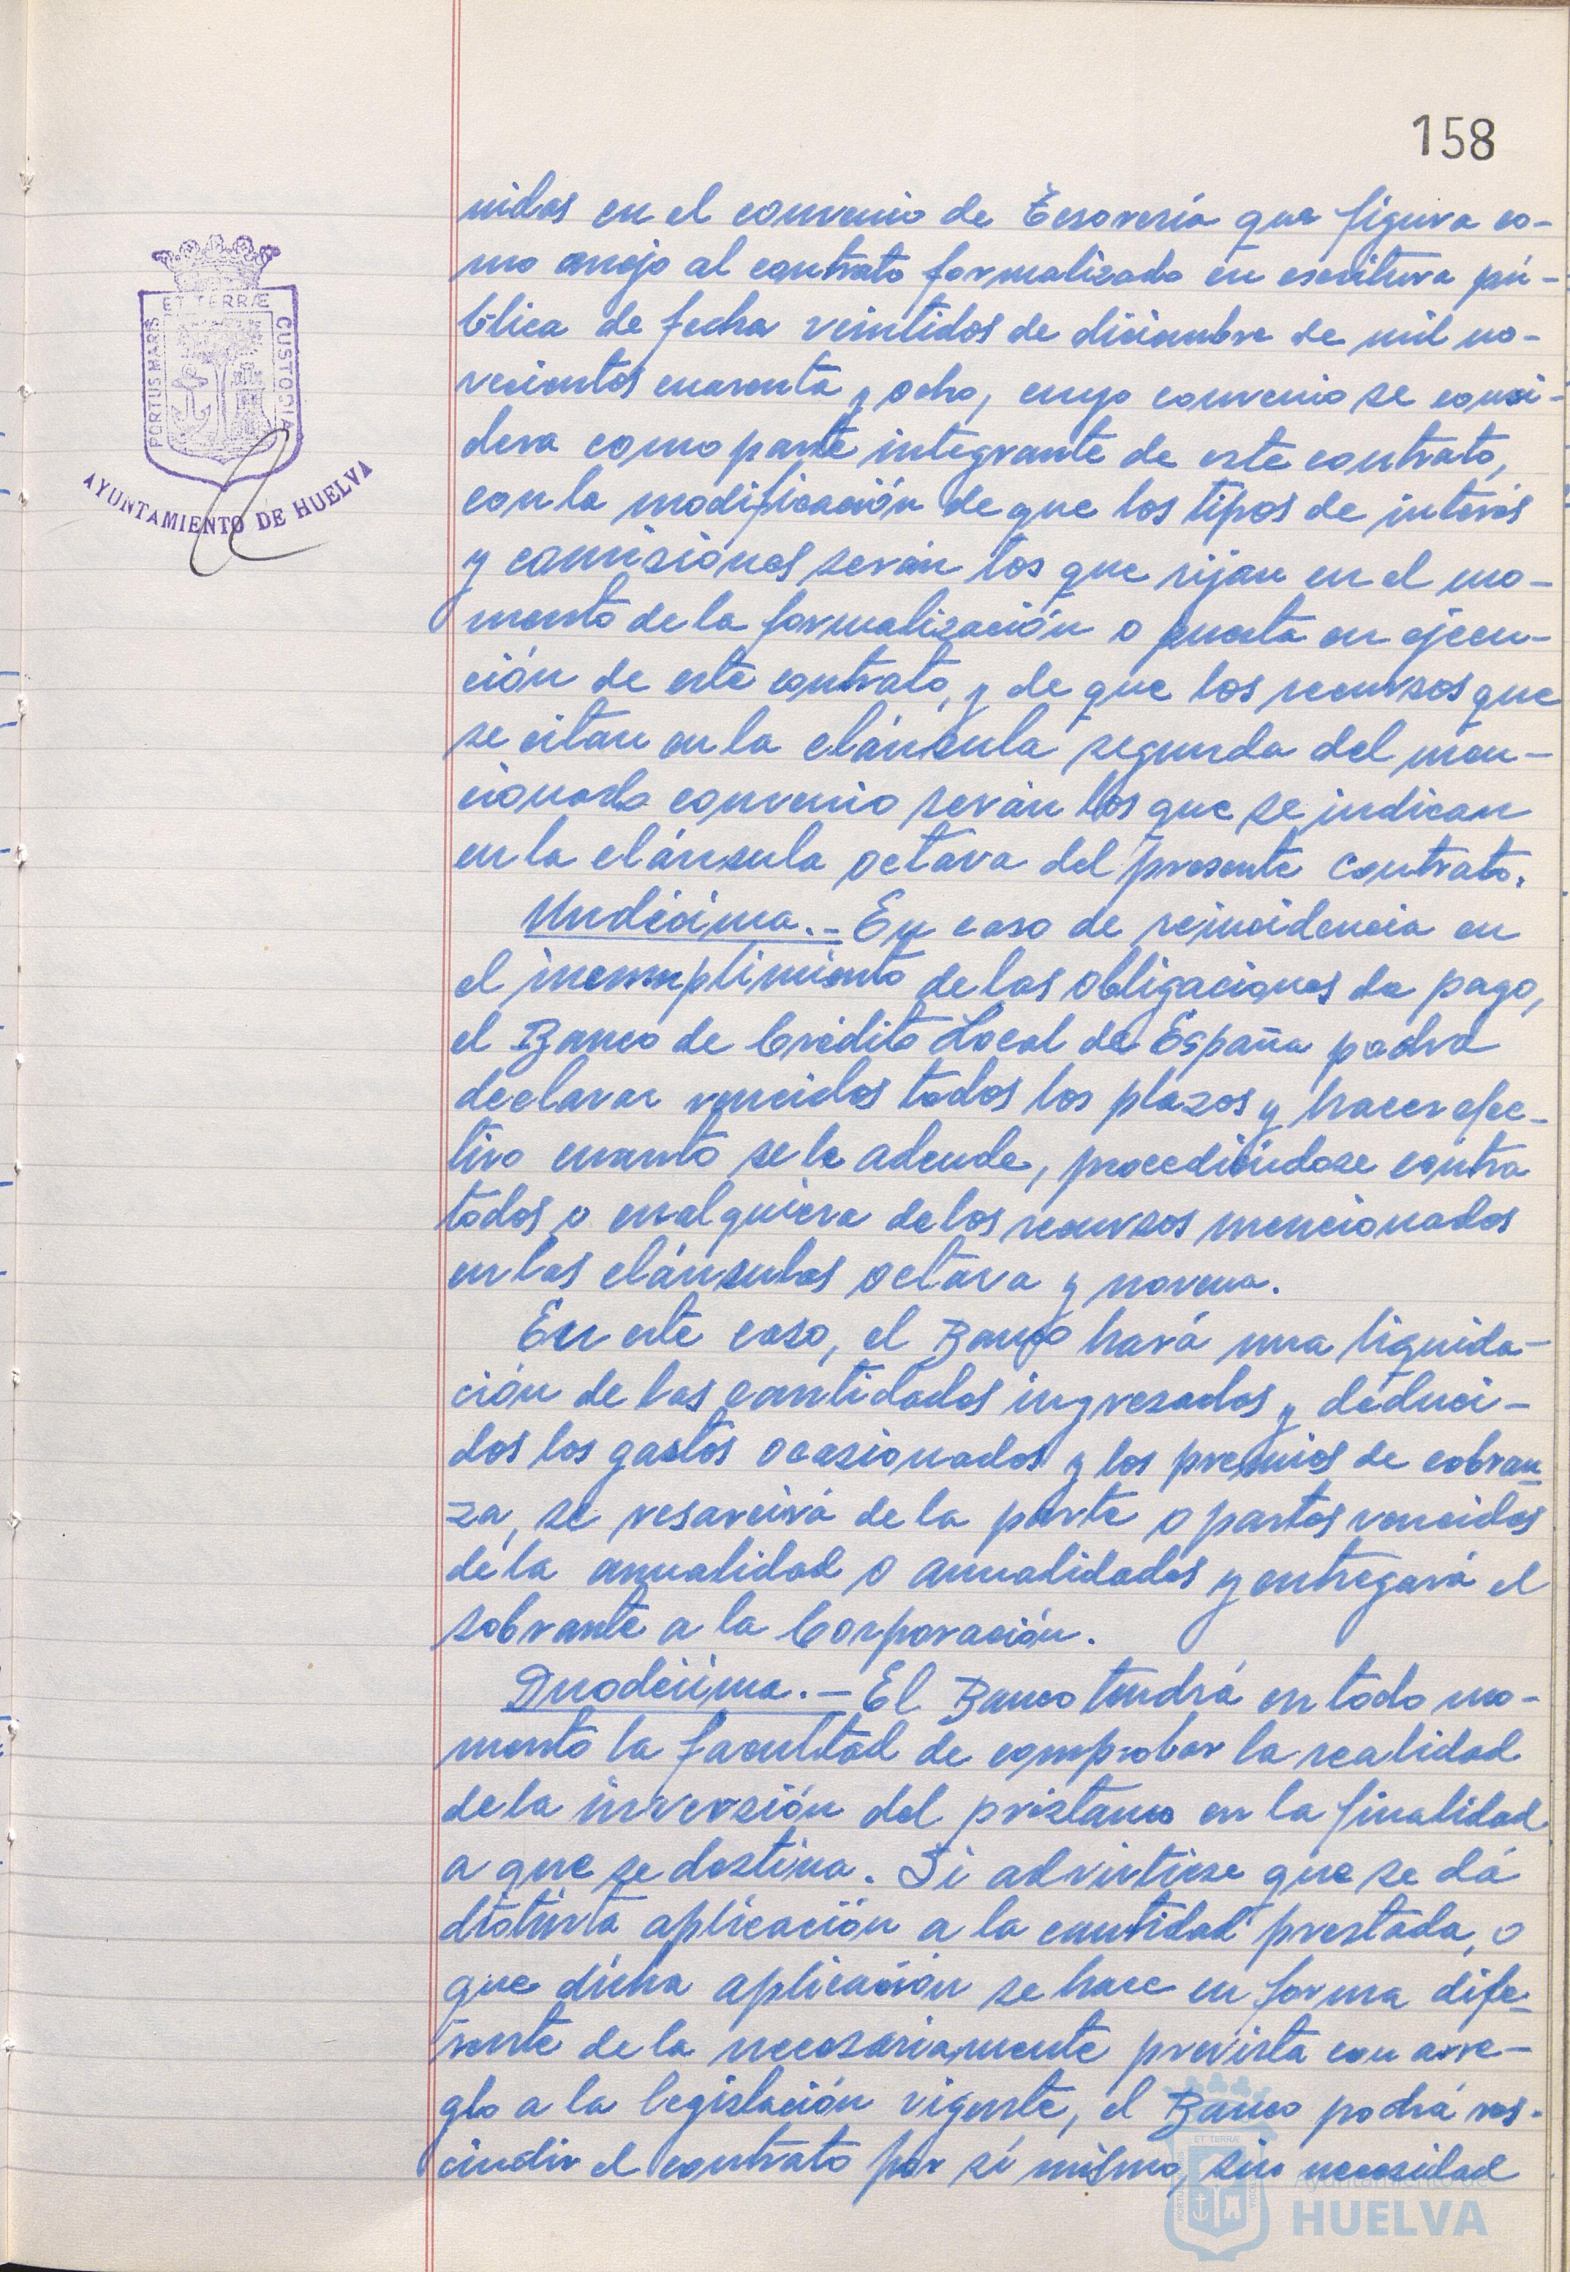 158
nidas en el convenio de Tesorería que figura co-
mo anejo al contrato formalizado en escritura pú-
blica de fecha veintidos de diciembre de mil no-
vecientos cuarenta y ocho, cuyo convenio se consi-
dera como parte integrante de este contrato,
con la modificación de que los tipos de interés
y comisiones serán los que rijan en el mo-
mento de la formalización o puesta en ejecu-
ción de este contrato, y de que los recursos que
se citan en la cláusula segunda del men-
cionado convenio serán los que se indican
en la cláusula octava del presente contrato.
Undécima.- En caso de reincidencia en
el incumplimiento de las obligaciones de pago,
el Banco de Crédito Local de España podrá
declarar vencidos todos los plazos y hacer efec-
tivo cuanto se le adeude, procediéndose contra
todos o cualquiera de los recursos mencionados
en las cláusulas octava y novena.
En este caso, el Banco hará una liquida-
ción de las cantidades ingresadas y deduci-
dos los gastos ocasionados y los premios de cobran-
za, se resarcirá de la parte o partes vencidas
de la anualidad o anualidades y entregará el
sobrante a la Corporación.
Duodécima.- El Banco tendrá en todo mo-
mento la facultad de comprobar la realidad
de la inversión del préstamo en la finalidad
a que se destina. Si advirtiese que se dá
distinta aplicación a la cantidad prestada, o
que dicha aplicación se hace en forma dife-
rente de la necesariamente prevista con arre-
glo a la legislación vigente, el Banco podrá res-
cindir el contrato por sí mismo, sin necesidad
PORTUS MARIS ET TERRÆ CUSTODIA
AYUNTAMIENTO DE HUELVA
Ayuntamiento de
HUELVA